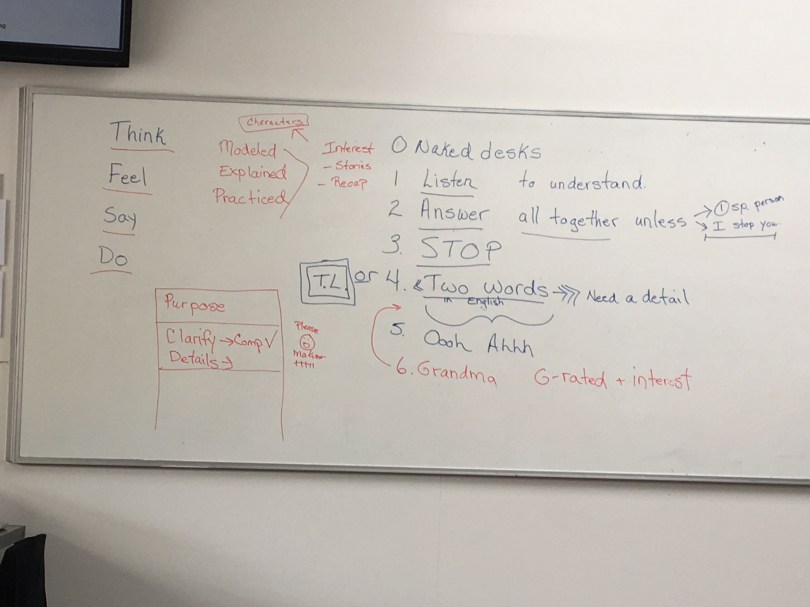 Think
Feel
Say
Do
Characters
Modeled
Explained
Practiced
Interest
- Stories
- Recap
0 Naked desks
1 Listen to understand.
2 Answer all together unless → ① sp. person
→ I stop you
3. STOP
T.L. or 4. & Two words →>> Need a detail
in English
5. Oooh Ahhh
6. Grandma G-rated + interest
Purpose
Clarify → Comp √
Details →
Please